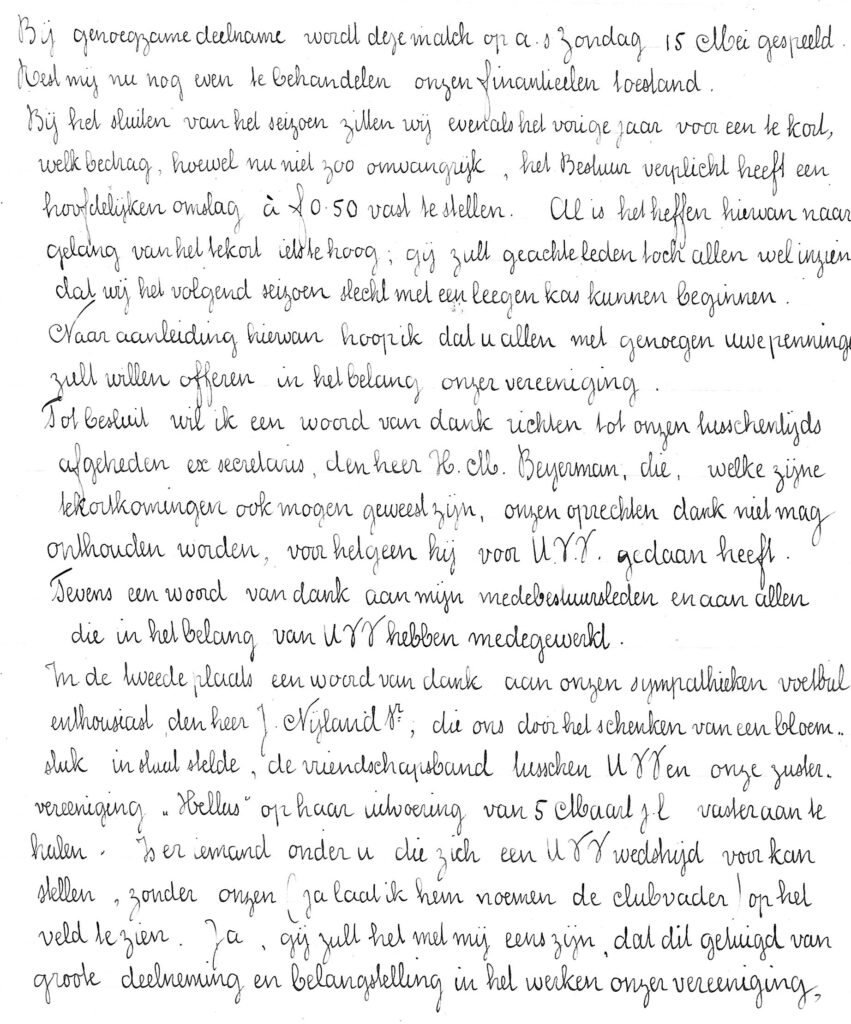 Bij genoegzame deelname wordt deze match op a.s Zondag 15 Mei gespeeld.
Rest mij nu nog even te behandelen onzen financieelen toestand.
Bij het sluiten van het seizoen zitten wij evenals het vorige jaar voor een te kort,
welk bedrag, hoewel nu niet zoo omvangrijk, het Bestuur verplicht heeft een
hoofdelijken omslag à f 0.50 vast te stellen. Al is het heffen hiervan naar
gelang van het tekort iets te hoog; gij zult geachte leden toch allen wel inzien
dat wij het volgend seizoen slecht met een leegen kas kunnen beginnen.
Naar aanleiding hiervan hoop ik dat u allen met genoegen uwe penninge
zult willen offeren in het belang onzer vereeniging.
Tot besluit wil ik een woord van dank richten tot onzen tusschentijds
afgeheden ex secretaris, den heer H. M. Beyerman, die, welke zijne
tekortkomingen ook mogen geweest zijn, onzen oprechten dank niet mag
onthouden worden, voor hetgeen hij voor U.V.V. gedaan heeft.
Tevens een woord van dank aan mijn medebestuursleden en aan allen
die in het belang van UVV hebben medegewerkt.
In de tweede plaats een woord van dank aan onzen sympathieken voetbal
enthousiast, den heer J. Nijland Sr, die ons door het schenken van een bloem..
stuk in staat stelde, de vriendschapsband tusschen UVV en onze zuster..
vereeniging „Hellas" op haar uitvoering van 5 Maart j.l vaster aan te
halen. Is er iemand onder u die zich een UVV wedstrijd voor kan
stellen, zonder onzen (ja laat ik hem noemen de clubvader) op het
veld te zien. Ja, gij zult het met mij eens zijn, dat dit getuigd van
groote deelneming en belangstelling in het werken onzer vereeniging,